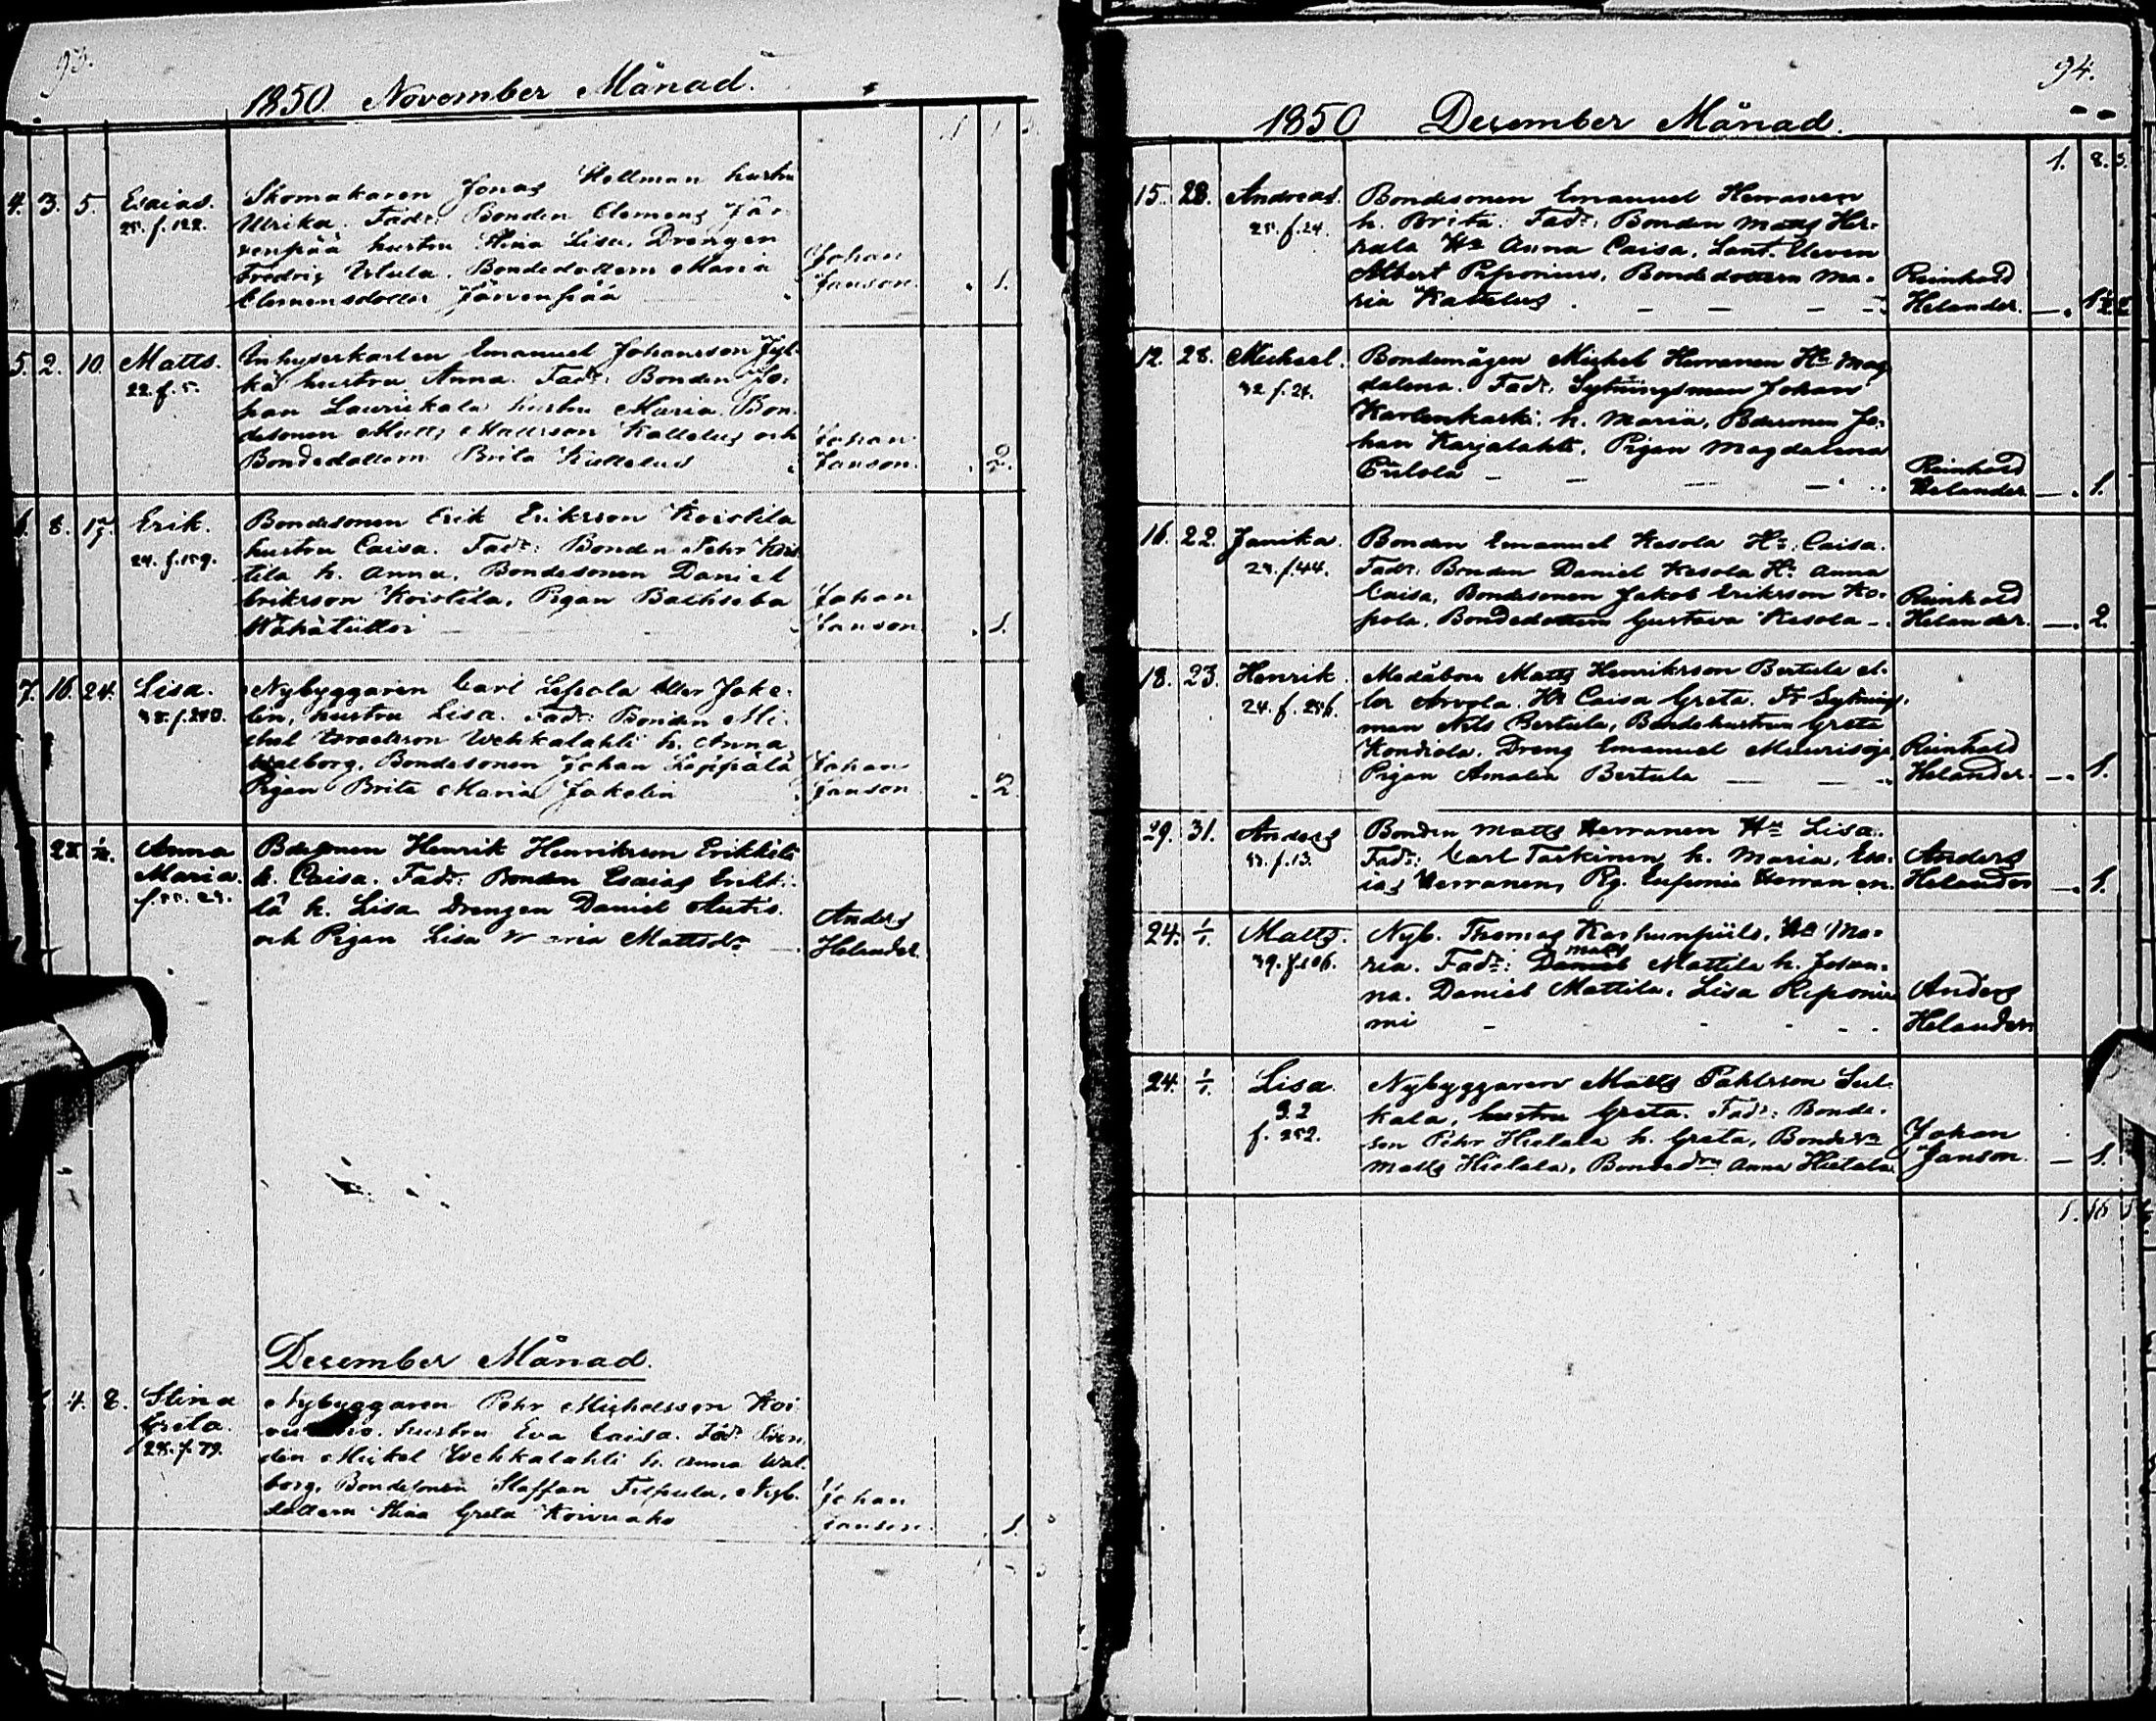 93.
1850 November Månad.
4. 3. 5. Esaias. 25. f. 122.
Skomakaren Jonas Hellman hustru
Ulrika. Fadr: Bonden Clemens Jär-
venpää hustru Stina Lisa, Drengen
Fredrig Ustula. Bondedottern Maria
Clemensdotter Järvenpää
Johan Janson. 1.
5. 2. 10. Matts. 22. f. 5.
Inhysekarlen Emanuel Johansson Jyl-
kä hustru Anna. Fadr: Bonden Jo-
han Laurickala hustru Maria. Bon-
desonen Matts Mattsson Kattelus och
Bondedottern Brita Kattelus
Johan Janson. 2.
6. 8. 17. Erik. 24. f. 159.
Bondesonen Erik Eriksson Koistila
hustru Caisa. Fadr: Bonden Pehr Kois-
tila h. Anna. Bondesonen Daniel
Eriksson Koistila, Pigan Bathseba
Wähätiitto
Johan Janson. 1.
7. 16. 24. Lisa.
Nybyggaren Carl Lepola eller Jake-
lin, hustru Lisa. Fadr: Bonden Mi-
chel Israelsson Wehkalahti h. Anna
Walborg. Bondesonen Johan Leppälä
Pigan Brita Maria Jakelin
Johan Janson 2.
28. 1/12. Anna Maria.
Bdesonen Henrik Henriksson Erikkilä
h. Caisa. Fadr: Bonden Esaias Erikki-
lä h. Lisa Drengen Daniel Autio
och Pigan Lisa Maria Mattsdr
Anders Helander.
December Månad.
4. 8. Stina Greta. 28. f. 79.
Nybyggaren Pehr Michelsson Koi-
hustru Eva Caisa. Fadr: Bon-
den Mickel Wehkalahti h. Anna Wal-
borg, Bondesonen Staffan Filpula, Nyb.
dottern Stina Greta Koivuaho
Johan Janson. 1.
94.
1850 December Månad.
1. 8. 5.
15. 28. Andreas. 25. f. 24.
Bondesonen Emanuel Herranen
h. Brita. Fadr: Bonden Matts Her-
rala Hu Anna Caisa, Lant. Eleven
Albert Peponius, Bondedottern Ma-
ria Kattelus
Reinhold Helander.
12. 28. Michael. 32 f. 24.
Bondemågen Michel Herranen Hu Mag
dalena. Fadr: Sytningsman Johan
Karlenkaski h. Maria, Bdesonen Jo-
han Karjalahti, Pigan Magdalena
Piilola
Reinhold Helander 1.
16. 22. Janika. 23. f. 44.
Bonden Emanuel Kesola Hu: Caisa.
Fadr: Bonden Daniel Kesola Hu Anna
Caisa, Bondesonen Jakob Eriksson Ko-
pola, Bondedottern Gustava Kesola
Reinhold Helander. 2.
18. 23. Henrik. 24. f. 256.
Medåboen Matts Henriksson Bertula el-
ler Arvola. Hu Caisa Greta. Fr Sytnings
man Nils Bertula, Bondehustrun Greta
Kondiola. Dreng Emanuel Maurisoja
Pigan Amalia Bertula
Reinhold Helander. 1.
29. 31. Anders 33. f. 13.
Bonden Matts Herranen Hu Lisa.
Fadr: Carl Taskinen h. Maria, Esa-
ias Herranen, Pig. Eufemia Herranen.
Anders Helander 1.
24. 1/1. Matts. 39. f. 106.
Nyb. Thomas Karhunpiilo, Hu Ma-
ria. Fadr: Matts Mattila h. Johan-
na. Daniel Mattila, Lisa Reponie
mi
Anders Helander
24. 1/1. Lisa 32 f. 252.
Nybyggaren Matts Påhlsson Sul-
kala, hustru Greta. Fadr: Bonde-
son Pehr Hietala h. Greta, Bondesn
Matts Hietala, Bondedrn Anna Hietala
Johan Janson. 1.